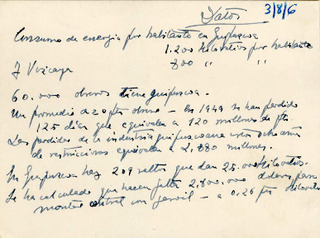 Datos
3/8/6
Consumo de energia por habitante en Guipuzcoa
1.200 kilovatios por habitante
Y Vizcaya 800 " "
60.000 obreros tiene Guipuzcoa.
Un promedio a 20 pts obrero - En 1949 se han perdido
125 dias que equivale a 120 millones de pts
Las perdidas de la industria guipuzcoana
de restricciones equivale a 2,880 millones.
En Guipuzcoa hay 209 saltos que dan 25.000 kilovatios.
Se ha calculado que hacen falta 2,800.000 dolares para
montar central con gasoil - a 0.26 pts kilovatio